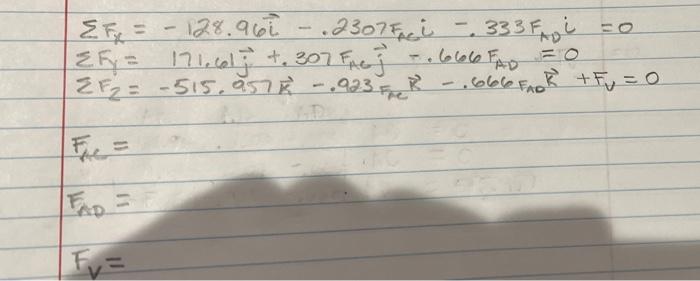 ΣFx = -128.96i⃗ - .2307 F_AC i - .333 F_AD i = 0
ΣFy = 171.61j⃗ + .307 F_AC j⃗ - .666 F_AD = 0
ΣFz = -515.957k⃗ - .923 F_AC k⃗ - .666 F_AD k⃗ + Fv = 0
F_AC =
F_AD =
Fv =